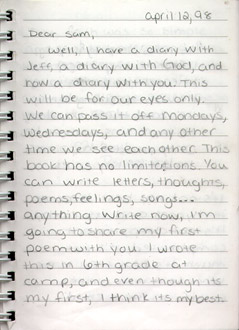 april 12, 98
Dear Sam,
Well, I have a diary with
Jeff, a diary with God, and
now a diary with you. This
will be for our eyes only.
We can pass it off Mondays,
Wednesdays, and any other
time we see each other. This
book has no limitations. You
can write letters, thoughts,
poems, feelings, songs...
anything. Write now, I'm
going to share my first
poem with you. I wrote
this in 6th grade at
camp, and even though its
my first, I think its my best.